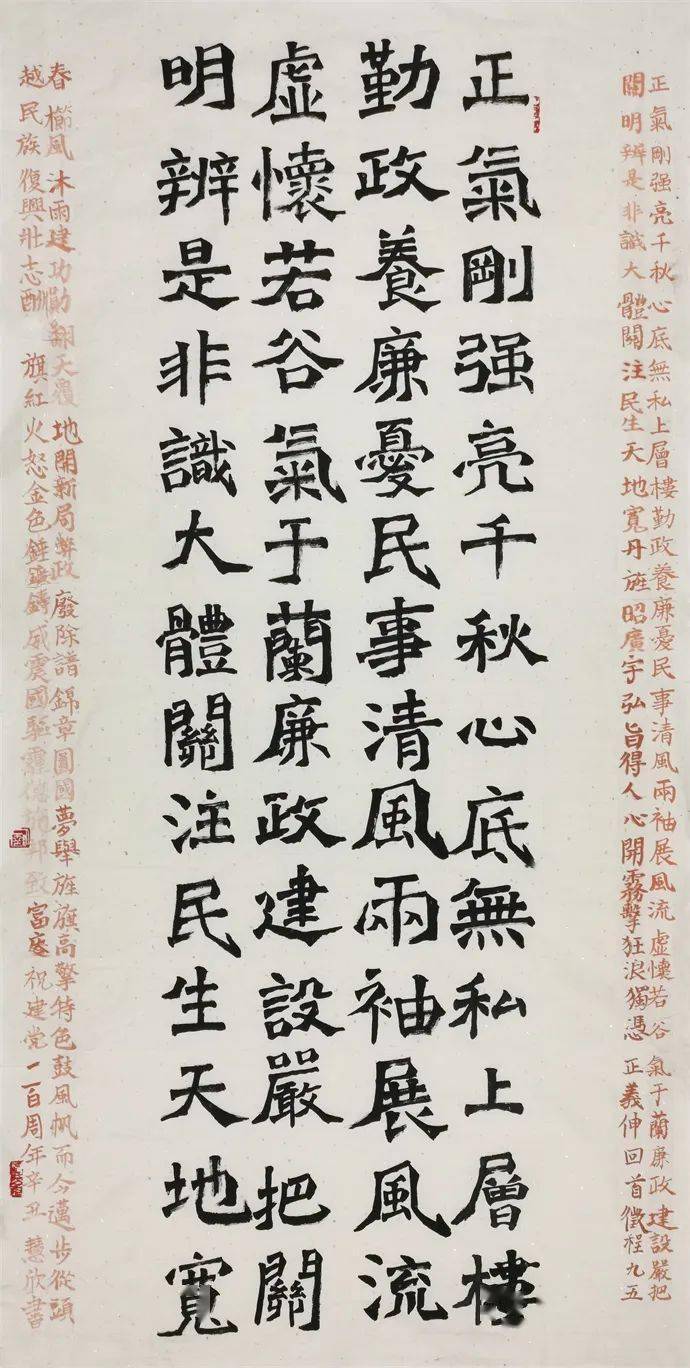 正氣剛强亮千秋心底無私上層樓
勤政養廉憂民事清風兩袖展風流
虛懷若谷氣于蘭廉政建設嚴把關
明辨是非識大體關注民生天地寬
正氣剛强亮千秋心底無私上層樓勤政養廉憂民事清風兩袖展風流虛懷若谷氣于蘭廉政建設嚴把
關明辨是非識大體關注民生天地寬丹旌昭廣宇弘旨得人心開霧擊狂浪獨憑正義伸回首徵程九五
春櫛風沐雨建功勛翻天覆地開新局弊政廢除譜錦章圓國夢舉旌旗高擎特色鼓風帆而今邁步從頭
越民族復興壯志酬旗紅火怒金色錘鐮鑄威震國驅邦致富慶祝建党一百周年辛丑慧欣書